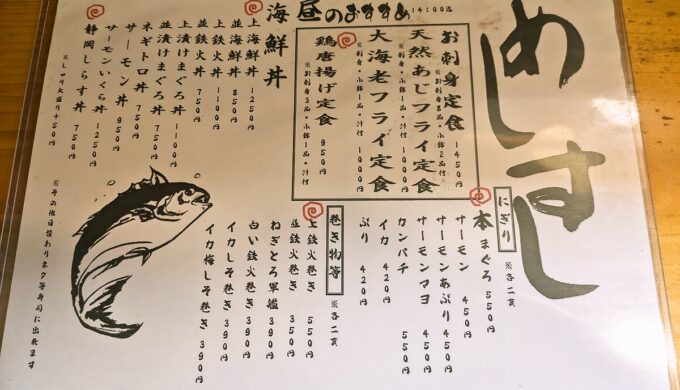 めしすし
昼のおすすめ 14:00迄
お刺身定食 1450円
※お刺身8品・小鉢2品・汁付
天然あじフライ定食 1000円
※お刺身・小鉢1品・汁付
大海老フライ定食 1000円
※お刺身・小鉢1品・汁付
鶏唐揚げ定食 950円
※お刺身3品・小鉢1品・汁付
海鮮丼
上海鮮丼 1250円
並海鮮丼 850円
上鉄火丼 1100円
並鉄火丼 750円
上漬けまぐろ丼 1100円
並漬けまぐろ丼 750円
ネギトロ丼 750円
サーモン丼 950円
サーモンいくら丼 1250円
静岡しらす丼 750円
※しゃり大盛り+50円
にぎり ※各二貫
本まぐろ 550円
サーモン 450円
サーモンあぶり 450円
サーモンマヨ 450円
カンパチ 550円
イカ 420円
ぶり 420円
巻き物等 ※各二貫
上鉄火巻き 550円
並鉄火巻き 350円
ねぎとろ軍艦 390円
白い鉄火巻き 390円
イカしそ巻き 390円
イカ梅しそ巻き 390円
※その他日替わりネタ等寿司に出来ます